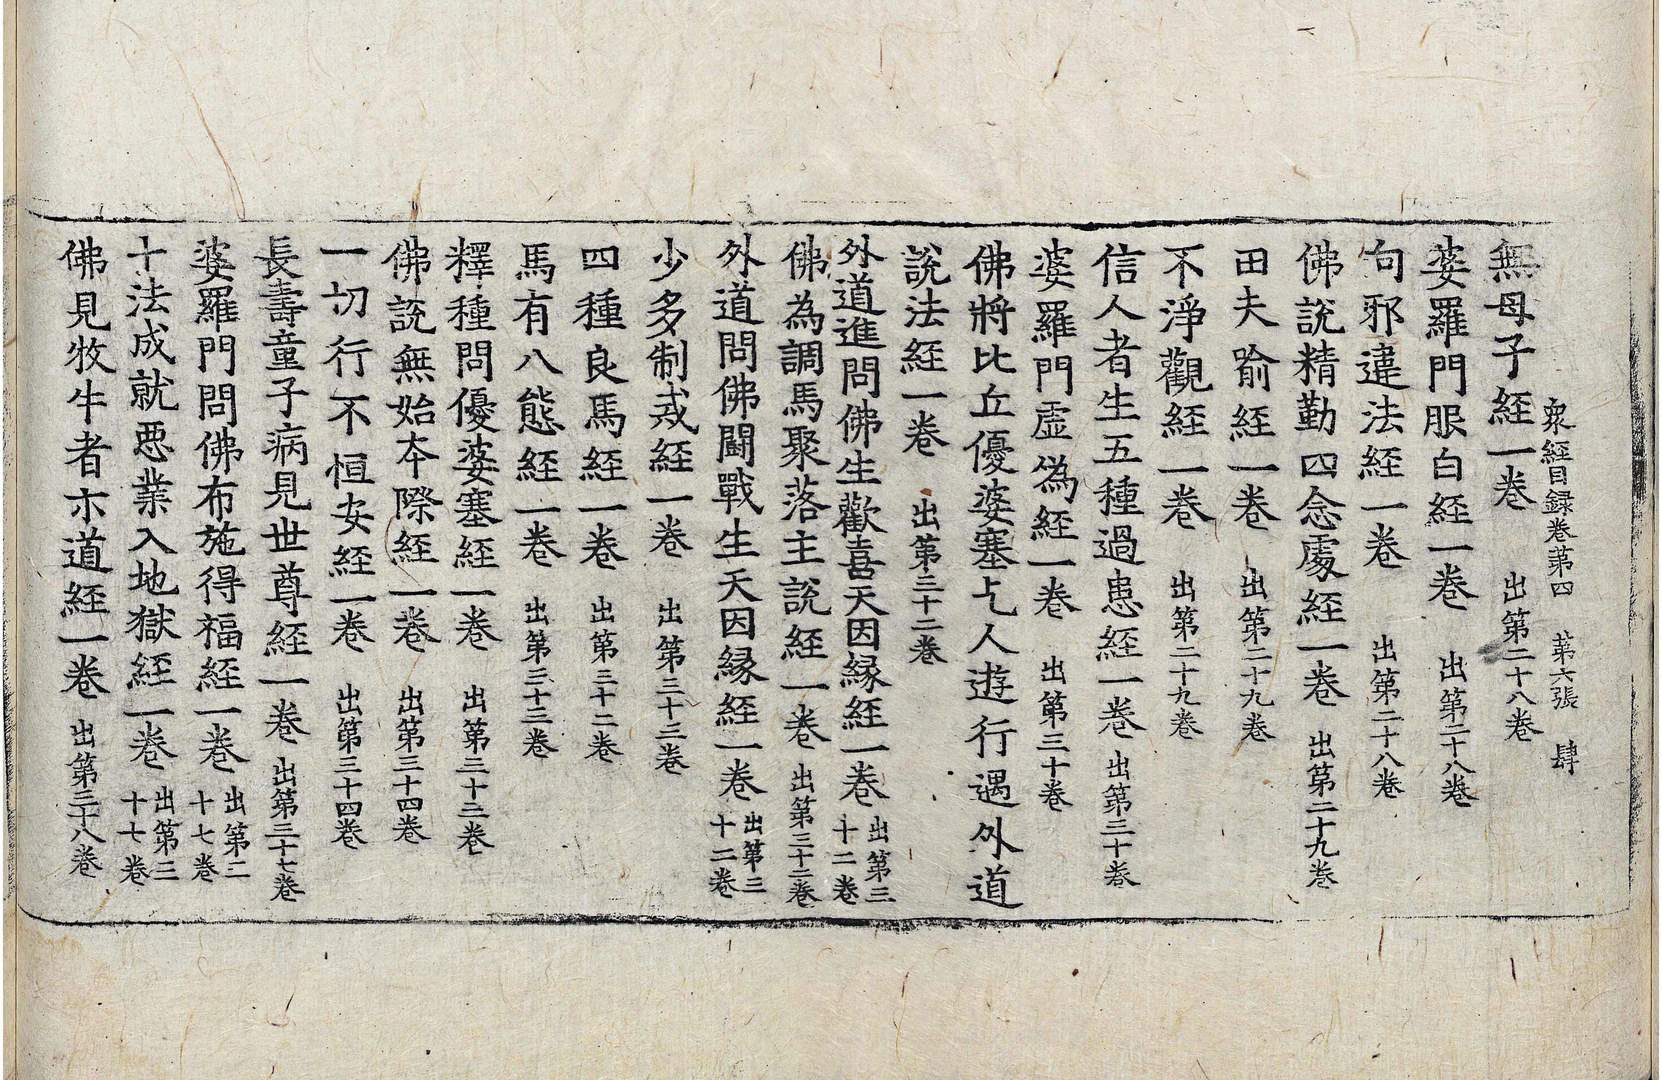 衆經目録卷第四　第六張　肆
無母子經一卷　出第二十八卷
婆羅門服白經一卷　出第二十八卷
句邪違法經一卷　出第二十八卷
佛說精勤四念處經一卷　出第二十九卷
田夫喻經一卷　出第二十九卷
不淨觀經一卷　出第二十九卷
信人者生五種過患經一卷　出第三十卷
婆羅門虛偽經一卷　出第三十卷
佛將比丘優婆塞七人遊行遇外道
說法經一卷　出第三十二卷
外道進問佛生歡喜天因縁經一卷　出第三十二卷
佛為調馬聚落主説經一卷　出第三十二卷
外道問佛鬪戰生天因縁經一卷　出第三十二卷
少多制戒經一卷　出第三十三卷
四種良馬經一卷　出第三十二卷
馬有八態經一卷　出第三十三卷
釋種問優婆塞經一卷　出第三十三卷
佛説無始本際經一卷　出第三十四卷
一切行不恒安經一卷　出第三十四卷
長壽童子病見世尊經一卷　出第三十七卷
婆羅門問佛布施得福經一卷　出第二十七卷
十法成就惡業入地獄經一卷　出第三十七卷
佛見牧牛者示道經一卷　出第三十八卷